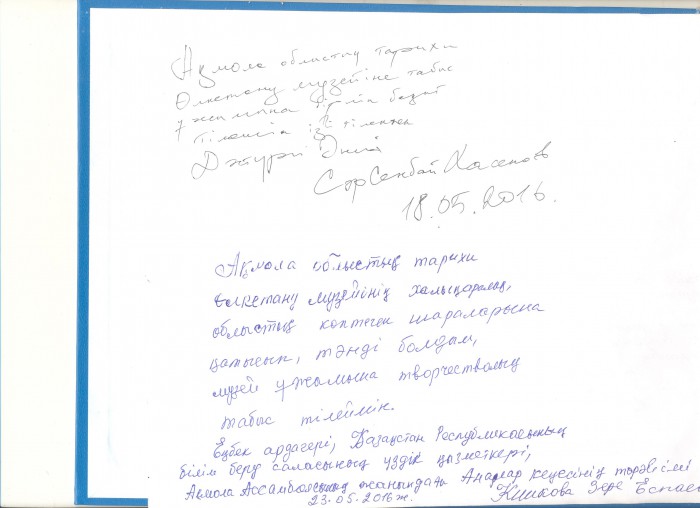 Ақмола облыстық тарихи
Өлкетану музейіне табыс
бақыт
Сәрсенбай Хасенов
18.05.2016.
Ақмола облыстың тарихи
өлкетану музейінің халықаралық,
облыстық көптеген шараларына
қатысып, тәнді болдым,
музей ұжымына творчестволық
табыс тілеймін.
Еңбек ардагері, Қазақстан Республикасының
білім беру саласының үздік қызметкері,
Ақмола Ассамблеясының жанындағы Аналар кеңесінің төрайымы
23.05.2016ж.